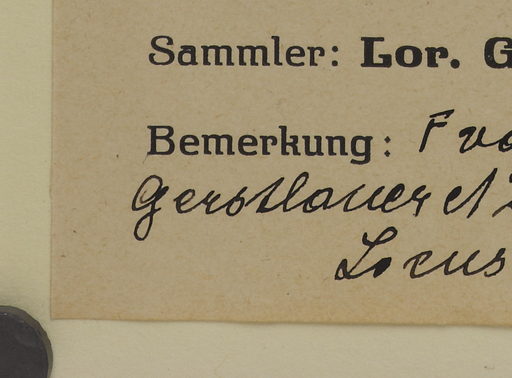 Sammler: Lor. G
Bemerkung: F vo
Gerstlauer et
Locus